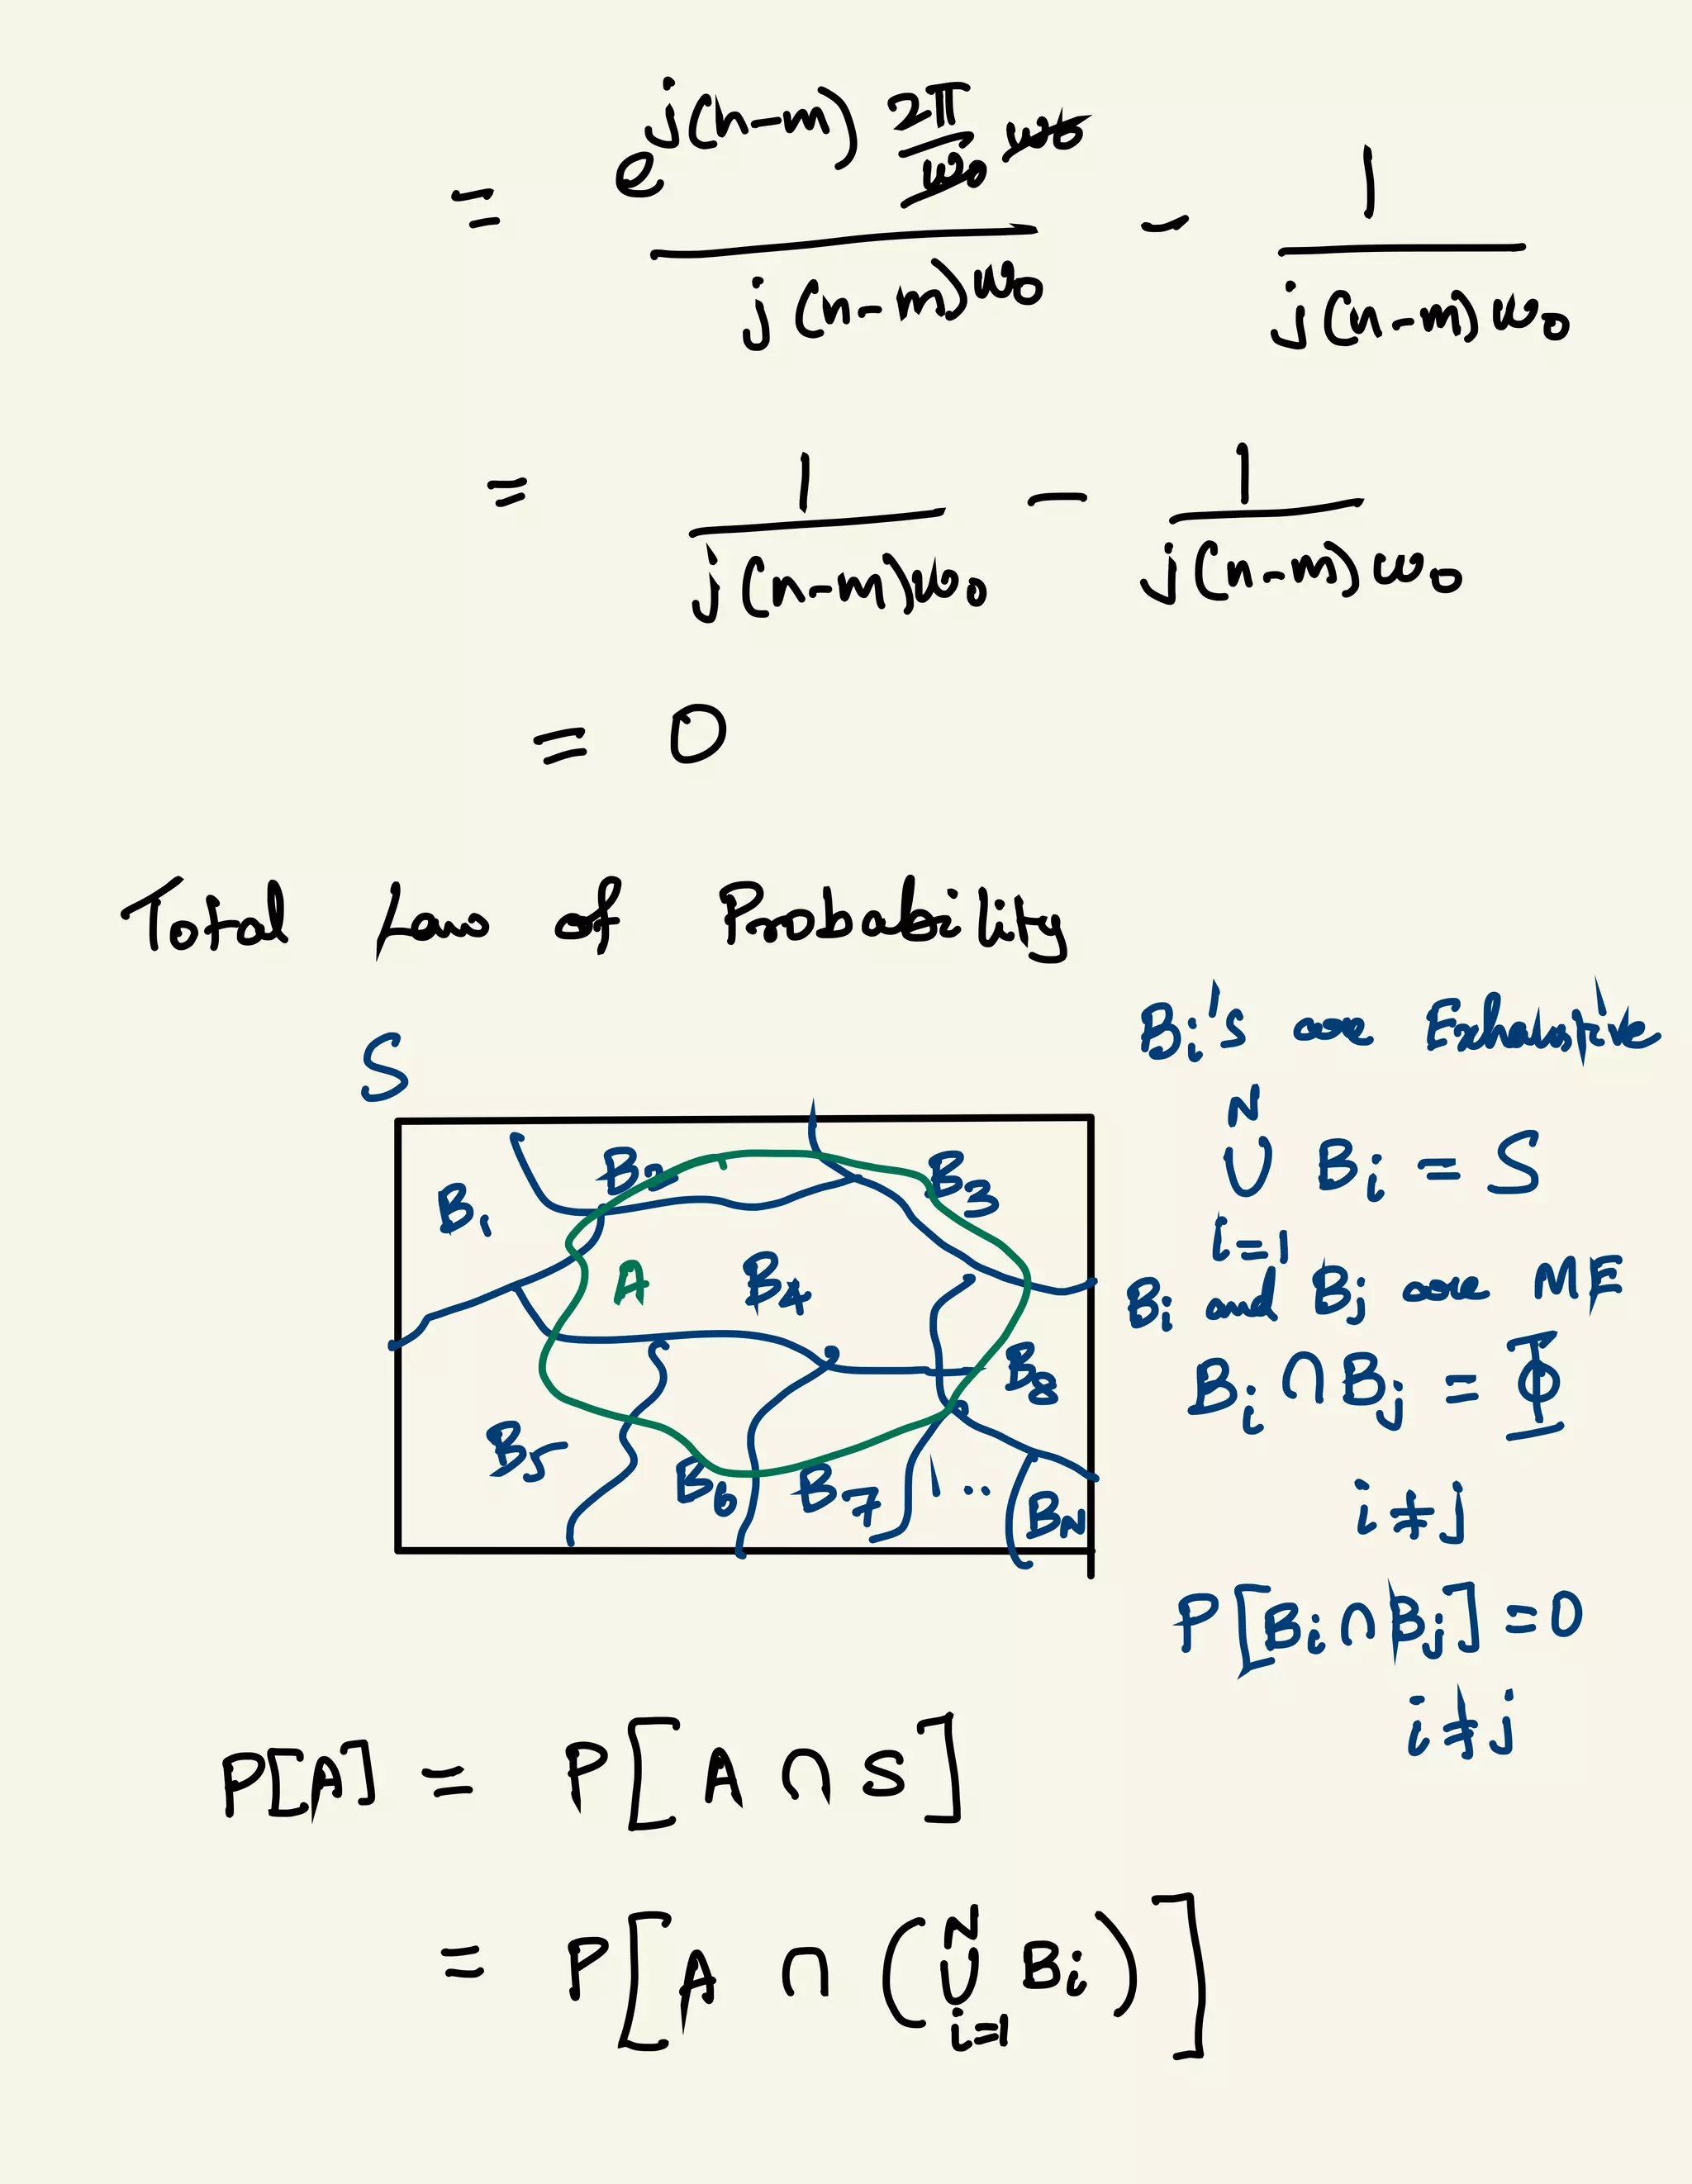 = e^{j(n-m) 2π/ω₀ ω₀} / j(n-m)ω₀ - 1 / j(n-m)ω₀
= 1 / j(n-m)ω₀ - 1 / j(n-m)ω₀
= 0
Total Law of Probability
S
B₁
B₂
B₃
A
B₄
B₈
B₅
B₆
B₇
...
B_N
Bᵢ's are Exhaustive
N
∪ Bᵢ = S
i=1
Bᵢ and Bⱼ are ME
Bᵢ ∩ Bⱼ = Φ
i ≠ j
P[Bᵢ ∩ Bⱼ] = 0
i ≠ j
P[A] = P[A ∩ S]
= P[A ∩ (∪_{i=1}^{N} Bᵢ)]